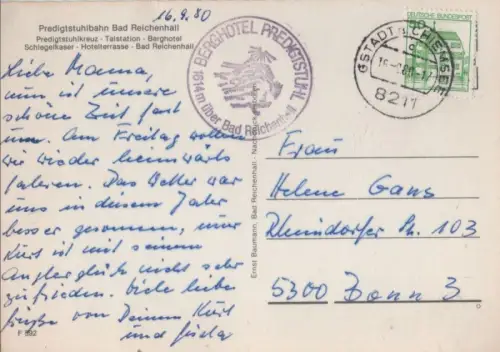 16.9.80
Predigtstuhlbahn Bad Reichenhall
Predigtstuhlkreuz - Talstation - Berghotel
Schlegelkaser - Hotelterrasse - Bad Reichenhall
Liebe Mama,
nun ist unsere
schöne Zeit fast
um. Am Freitag wollen
wir wieder heimwärts
fahren. Das Wetter war
uns in diesem Jahr
besser gesonnen, nur
Kurt ist mit seinem
Anglerglück nicht sehr
zufrieden. Viele liebe
Grüße von Deinem Kurt
und
F 892
BERGHOTEL PREDIGTSTUHL
1614m über Bad Reichenhall
Ernst Baumann, Bad Reichenhall - Nachdruck verboten
GSTADT CHIEMSEE
8211
DEUTSCHE BUNDESPOST
Frau
Helene Gans
Rheindorfer Str. 103
5300 Bonn 3